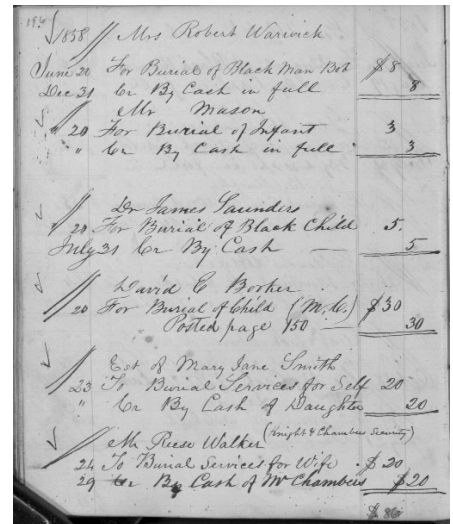 196
1858 Mrs Robert Warwick
June 20 For Burial of Black Man Bob $8
Dec 31 Cr By Cash in full 8
Mr Mason
20 For Burial of Infant 3
" Cr By Cash in full 3
Dr James Saunders
20 For Burial of Black Child 5.
July 31 Cr By Cash — 5
David E Booker
20 For Burial of Child (M.C.) $30
Posted page 150 — 30
Est of Mary Jane Smith
23 To Burial Services for Self 20
" Cr By Cash of Daughter 20
Mr Reese Walker (Knight & Chambers Security)
24 To Burial Services for Wife . $20
29 Cr By Cash of Mr Chambers $20
$86